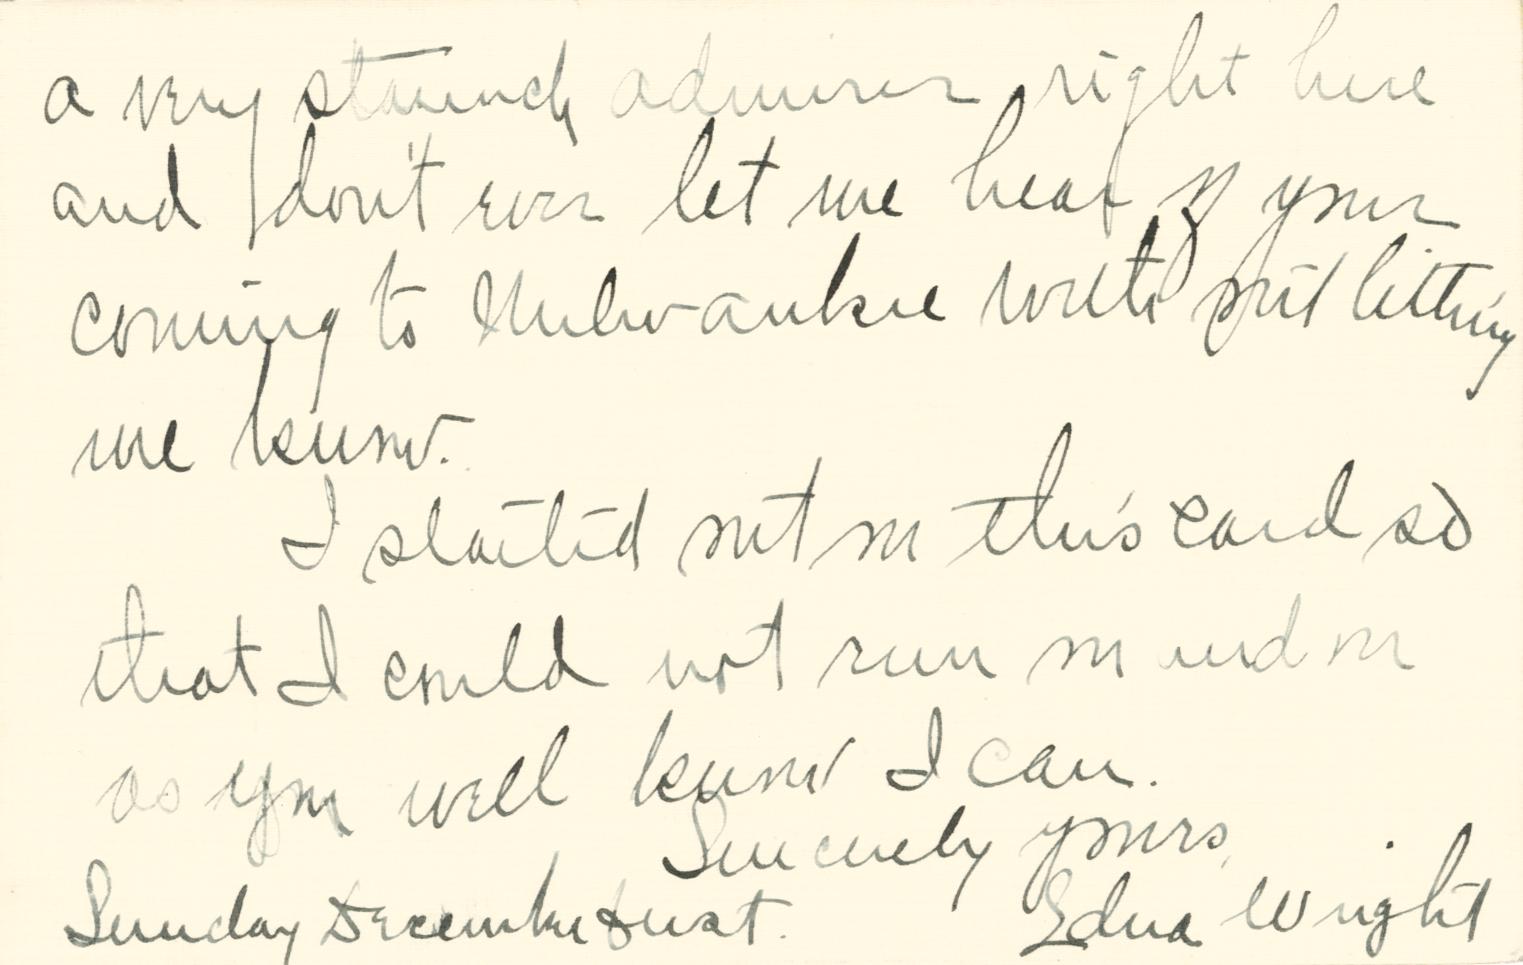 a very staunch admirer right here
and don't ever let me hear of your
coming to Milwaukee with out letting
me know.
I started out on this card so
that I could not run on and on
as you well know I can.
Sincerely yours,
Sunday December first. Edna Wright